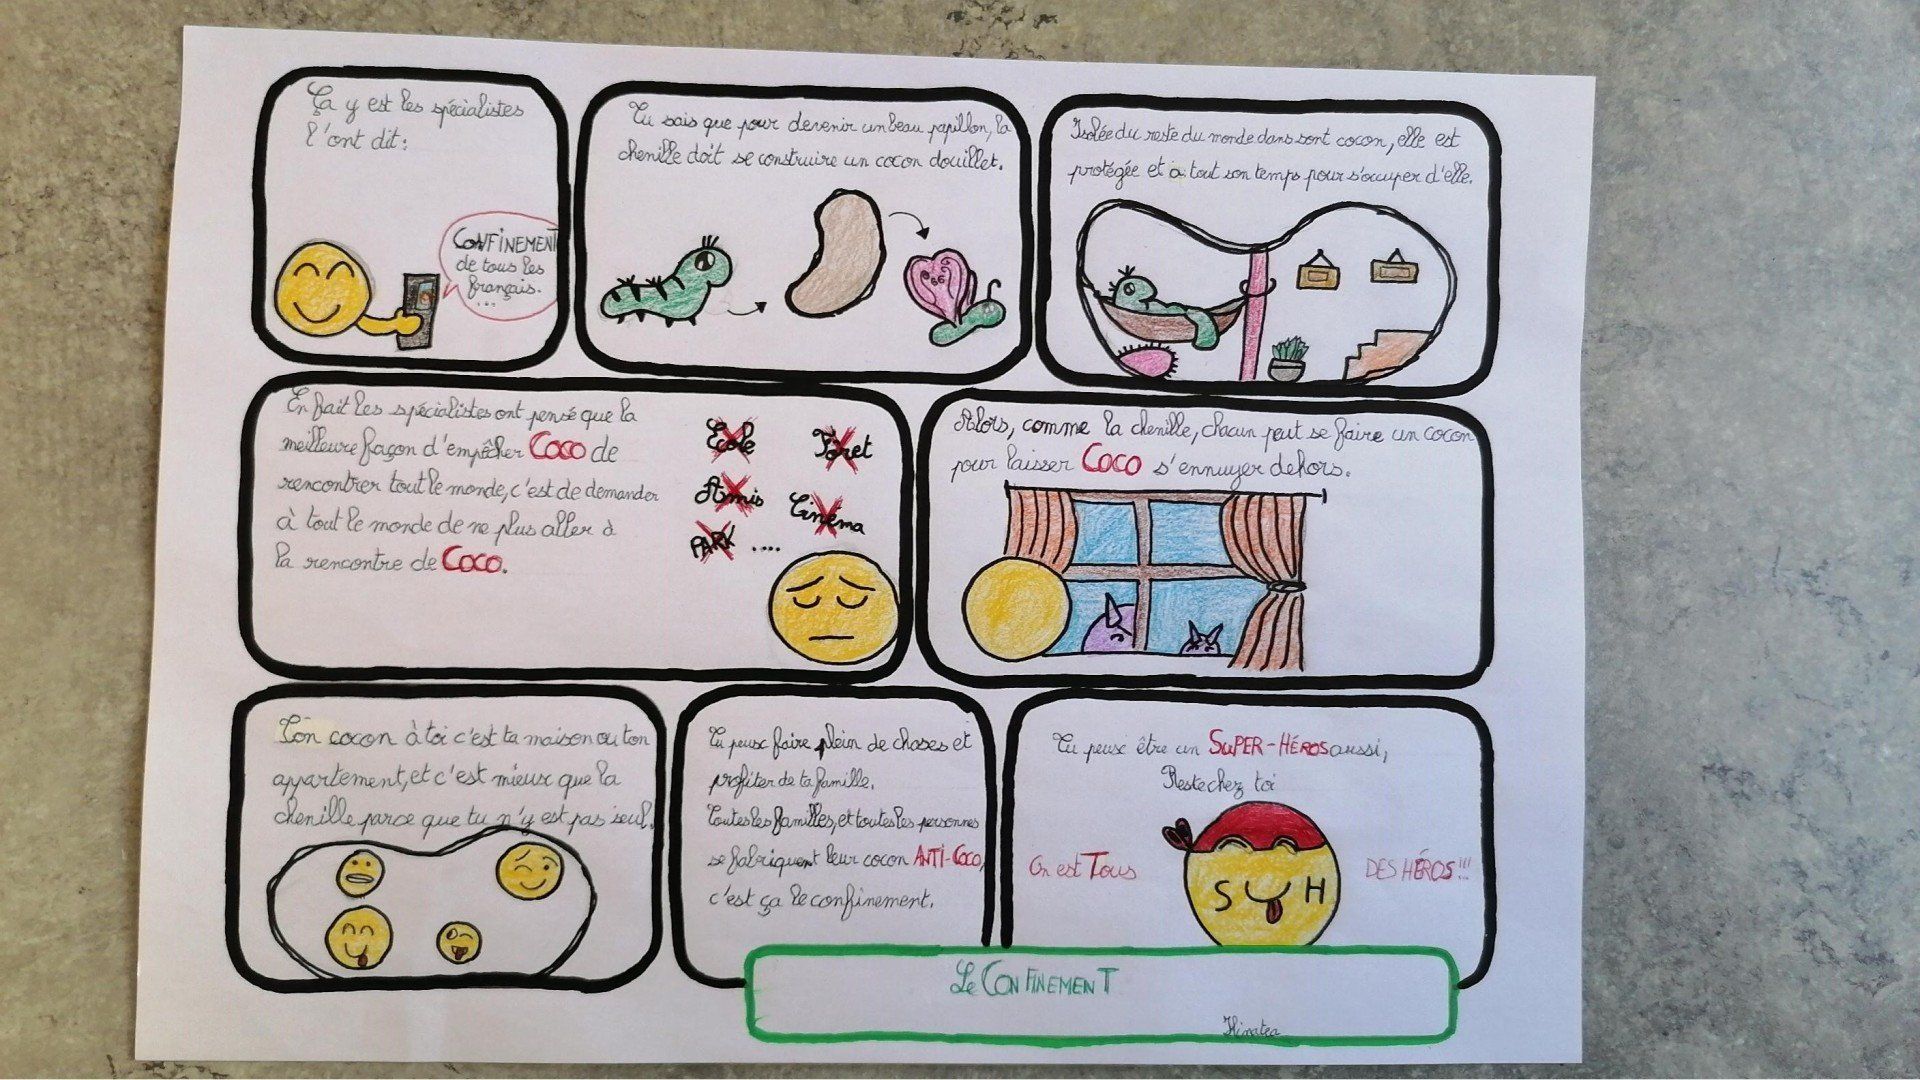 Ça y est les spécialistes
l'ont dit:
CONFINEMENT
de tous les
français.
...
Tu sais que pour devenir un beau papillon, la
chenille doit se construire un cocon douillet.
Isolée du reste du monde dans sont cocon, elle est
protégée et a tout son temps pour s'occuper d'elle.
En fait les spécialistes ont pensé que la
meilleure façon d'empêcher Coco de
rencontrer tout le monde, c'est de demander
à tout le monde de ne plus aller à
la rencontre de Coco.
Ecole Foret
Amis Cinéma
PARK ....
Alors, comme la chenille, chacun peut se faire un cocon
pour laisser Coco s'ennuyer dehors.
Ton cocon à toi c'est ta maison ou ton
appartement, et c'est mieux que la
chenille parce que tu n'y est pas seul.
Tu peux faire plein de choses et
profiter de ta famille.
Toutes les familles, et toutes les personnes
se fabriquent leur cocon ANTI-COCO,
c'est ça le confinement.
Tu peux être un SUPER-HÉROS aussi,
Reste chez toi
On est Tous DES HÉROS!!!
S H
Le CONFINEMENT
Hinatea